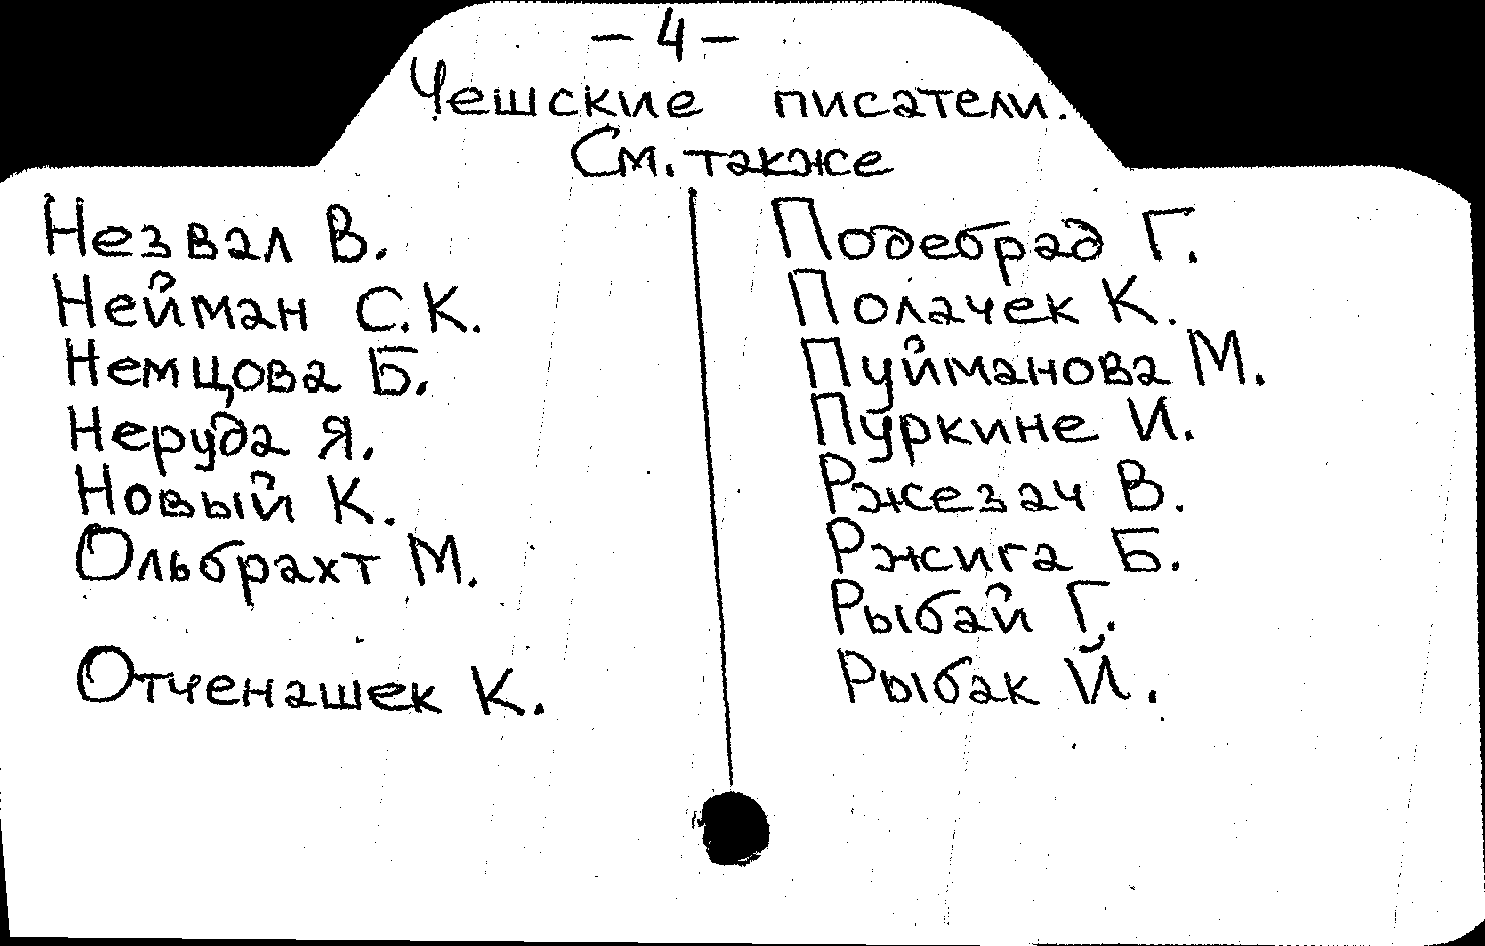 – 4 –
Чешские писатели.
См. также
Незвал В.
Нейман С.К.
Немцова Б.
Неруда Я.
Новый К.
Ольбрахт М.
Отченашек К.
Подебрад Г.
Полачек К.
Пуйманова М.
Пуркине И.
Ржезач В.
Ржига Б.
Рыбай Г.
Рыбак Й.